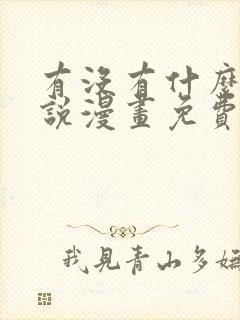 有沒有什麼
說漫畫免費
我見青山多嫵